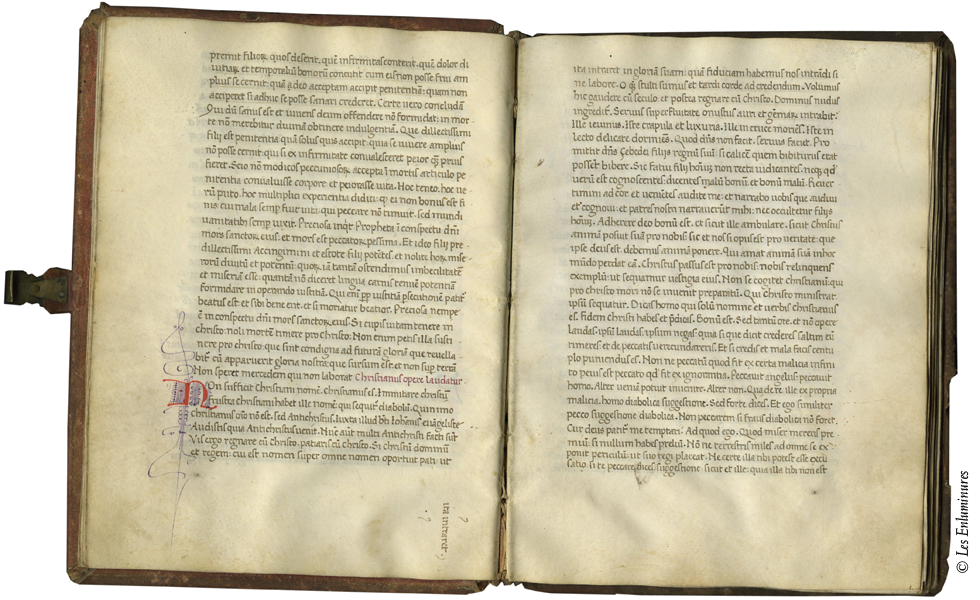 premit filioꝝ quos deserit. quē infirmitas cōterit. quē dolor di
uitiaꝝ et temporaliū bonorum concutit cum eis non posse frui am
plius se cernit: quā a deo acceptam accipit penitentiā: quam non
acciperet si adhuc se posse sanari crederet. Certe uero concludam
Qui dū sanus est et iuuenis deum offendere nō formidat: in mor
te nō merebitur diuinā obtinere indulgentiā. Que dillectissimi
filij est penitentia quā solus quis accipit. quia se iuuere amplius
nō posse cernit: qui si ex infirmitate conualesceret peior qͣ prius
fieret. Scio nō modicos pecuniosos. accepta ī mortis articulo pe
nitentia conualuisse corpore et peiorasse uita. Hoc teneo. hoc ue
rū puto. hoc multiplici experientia didici: qͥ ei non bonus est fi
nis cui mala semp fuit uita. qui peccare nō timuit. sed in mundi
uanitatibi semp uixit. Preciosa inqt Propheta ī conspectu dn̄i
mors sanctoꝝ eius. et mors est peccatoꝝ pessima. Et ideo filij pre
dillectissimi Accingimini et estote filij potētes. et nolite hoꝝ mise
roꝝ diuitū et potentū: quoꝝ iā tantā ostendimus imbecilitatē
et miseriā esse: quantā nū diceret lingua carnis ruinē potentiam
formidare in operando iustitiā. Qui enī pp iustitiā psecutionem patit
beatus est et sibi bene erit. et si moriatur beatior. Preciosa nempe
ē in conspectu dn̄i mors sanctoꝝ eius. Si cupis uitam tenere in
christo: noli mortē timere pro christo. Non enim potis illa susti
nere pro christo. que sint condigna ad futurā gloriā que reuella
bit cū apparuerit gloria nostra: que sursum est et non sup terrā
Non speret mercedem qui non laborat Christianus opere laudatur
Non sufficit Christiani nomē. christianus es. Immitare christū
Frustra christiani habet ille nomē qui sequit diabolū. Quin imo
christianus oīo nō est. sed Antichristus. iuxta illud bti Iohanis euāgeliste
Audistis quia Antichristus uenit. Nūc aūt multi Antichristi facti sūt
Vis ergo regnare cū christo. patiaris cū christo. Si christū dominū
et regem: cui est nomen super omne nomen oportuit pati: ut
ita intraret
ita intraret in gloriā suam: quā fiduciam habemus nos intrādi si
ne labore. O qͣ stulti sumus et tardi corde ad credendum. Volumus
hic gaudere cū seculo et postea regnare cū christo. Dominus nudus
ingredit. Seruus superfluitate onustus auri et gēmaꝝ intrabit:
Ille ieiunus. Iste crapula et luxuria. Ille in cruce moriēs. Iste in
lecto delicate dormiēs. Quod dn̄s non facit. seruus faciet. Pro
mittit dn̄s Zebedei filijs regnū suū: si calicē quem bibiturus erat
possent bibere. Sic fatui filij hoīuꝫ non recta iudicantes. neqꝫ qd
uerū est cognoscentes: dicentes malū bonū: et bonū malū. Reuer
timini ad cor et uenietes audite me: et narrabo uobis que audiui
et cognoui: et patres nostri narrauerūt mihi: nec occultetur filijs
hoīuꝫ. Adherere deo bonū est. et sicut ille ambulare. sicut christus
animā posuit suā pro nobis: sic et nos si opus est pro ueritate: que
ipse deus est. debemus animā ponere. Qui amat animā suā in hoc
mūdo perdat eā. Christus passus est pro nobis: nobis relinquens
exemplū: ut sequamur uestigia eius. Non se cogitet christianū: qui
pro christo mori nō se inuenit preparatū. Qui christo ministrat.
ipsū sequatur. Dicas homo qui solū nomine et uerbis christianus
es. fidem christi habes et dicis. Bonū est. Sed tantū ore. et nō opere
laudas. ipsū laudas. ipsum negas: qua si que dicit crederes saltem eū
timeres et de peccatis uerecundareris. Et si credis et mala facis centu
plo puniendus es. Non ne peccatū quod fit ex certa malicia infini
to peius est peccato qd fit ex ignorantia. Peccauit angelus: peccauit
homo. Alter ueniā potuit inuenire. Alter non. Quare: ille ex propria
malicia. homo diabolica suggestione. Sed forte dices. Et ego similiter
pecco suggestione diabolica. Non peccarem si fraus diabolica nō foret.
Cur deus patit me temptari: Ad quod ego. Quod miser mereris pre
miū: si nullum habes preliū. Nō ne terrestris miles ad omne se ex
ponit periculū: ut suo regi placeat. Ne certe illa tibi potest esse excu
satio. si te peccare dices suggestione sicut et ille: quia illa tibi non est
© Les Enluminures